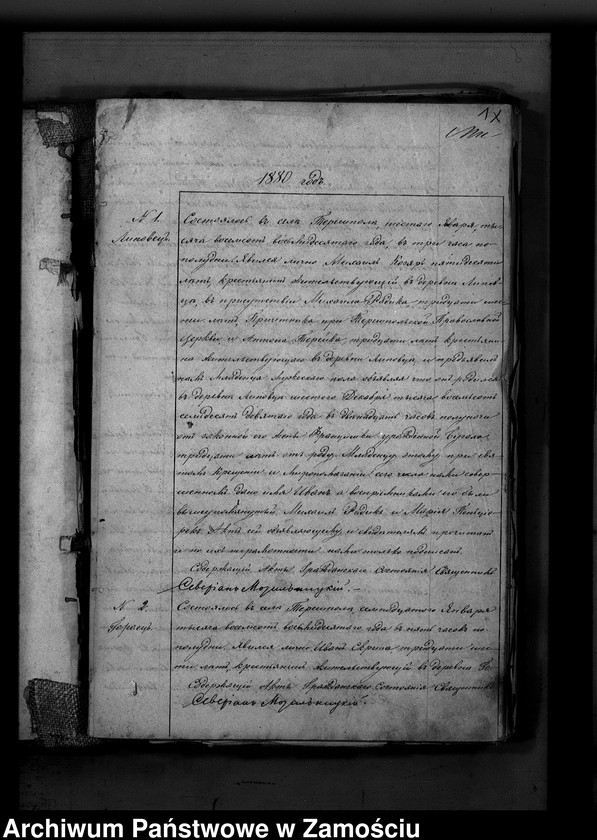 1880 годъ.
N 1.
Липовецъ.
Состоялось въ селѣ Терешполѣ, шестого Января, ты-
сяча восемьсотъ восьмидесятаго года, въ три часа по
полудни. Явился лично Михаилъ Косяръ пятидесяти
лѣтъ крестьянинъ жительствующій въ деревни Липов-
цѣ, въ присутствіи Михаила Фядика тридцати
лѣтъ, Причетника при Терешпольской Православной
Церкви и Антона тридцати лѣтъ крестьяни-
на жительствующаго въ деревни Липовцѣ, и предъявилъ
намъ Младенца мужескаго пола объявляя что онъ родился
въ деревни Липовцѣ шестого Декабря тысяча восемьсотъ
семьдесятъ девятаго года въ двѣнадцать часовъ полуночи
отъ законной его жены урожденной
тридцати лѣтъ отъ роду. Младенцу этому при свя-
томъ крещеніи и Миропомазаніи сего числа нами совер-
шенномъ дано имя Иванъ а воспріемниками его были
вышеупомянутый Михаилъ Фядикъ и Марія
Актъ сей объявляющему и свидѣтелямъ прочитанъ
и по ихъ неграмотности нами только подписанъ.
Содержащій Актъ Гражданскаго Состоянія Священникъ
Северіанъ Могильницкій.
N 2.
Состоялось въ селѣ Терешполѣ, семнадцатаго Января
тысяча восемьсотъ восьмидесятаго года въ пять часовъ по
полудни. Явился лично Иванъ тридцати
лѣтъ, крестьянинъ жительствующій въ деревни
Содержащій Актъ Гражданскаго Состоянія Священникъ
Северіанъ Могильницкій.
Archiwum Państwowe w Zamościu